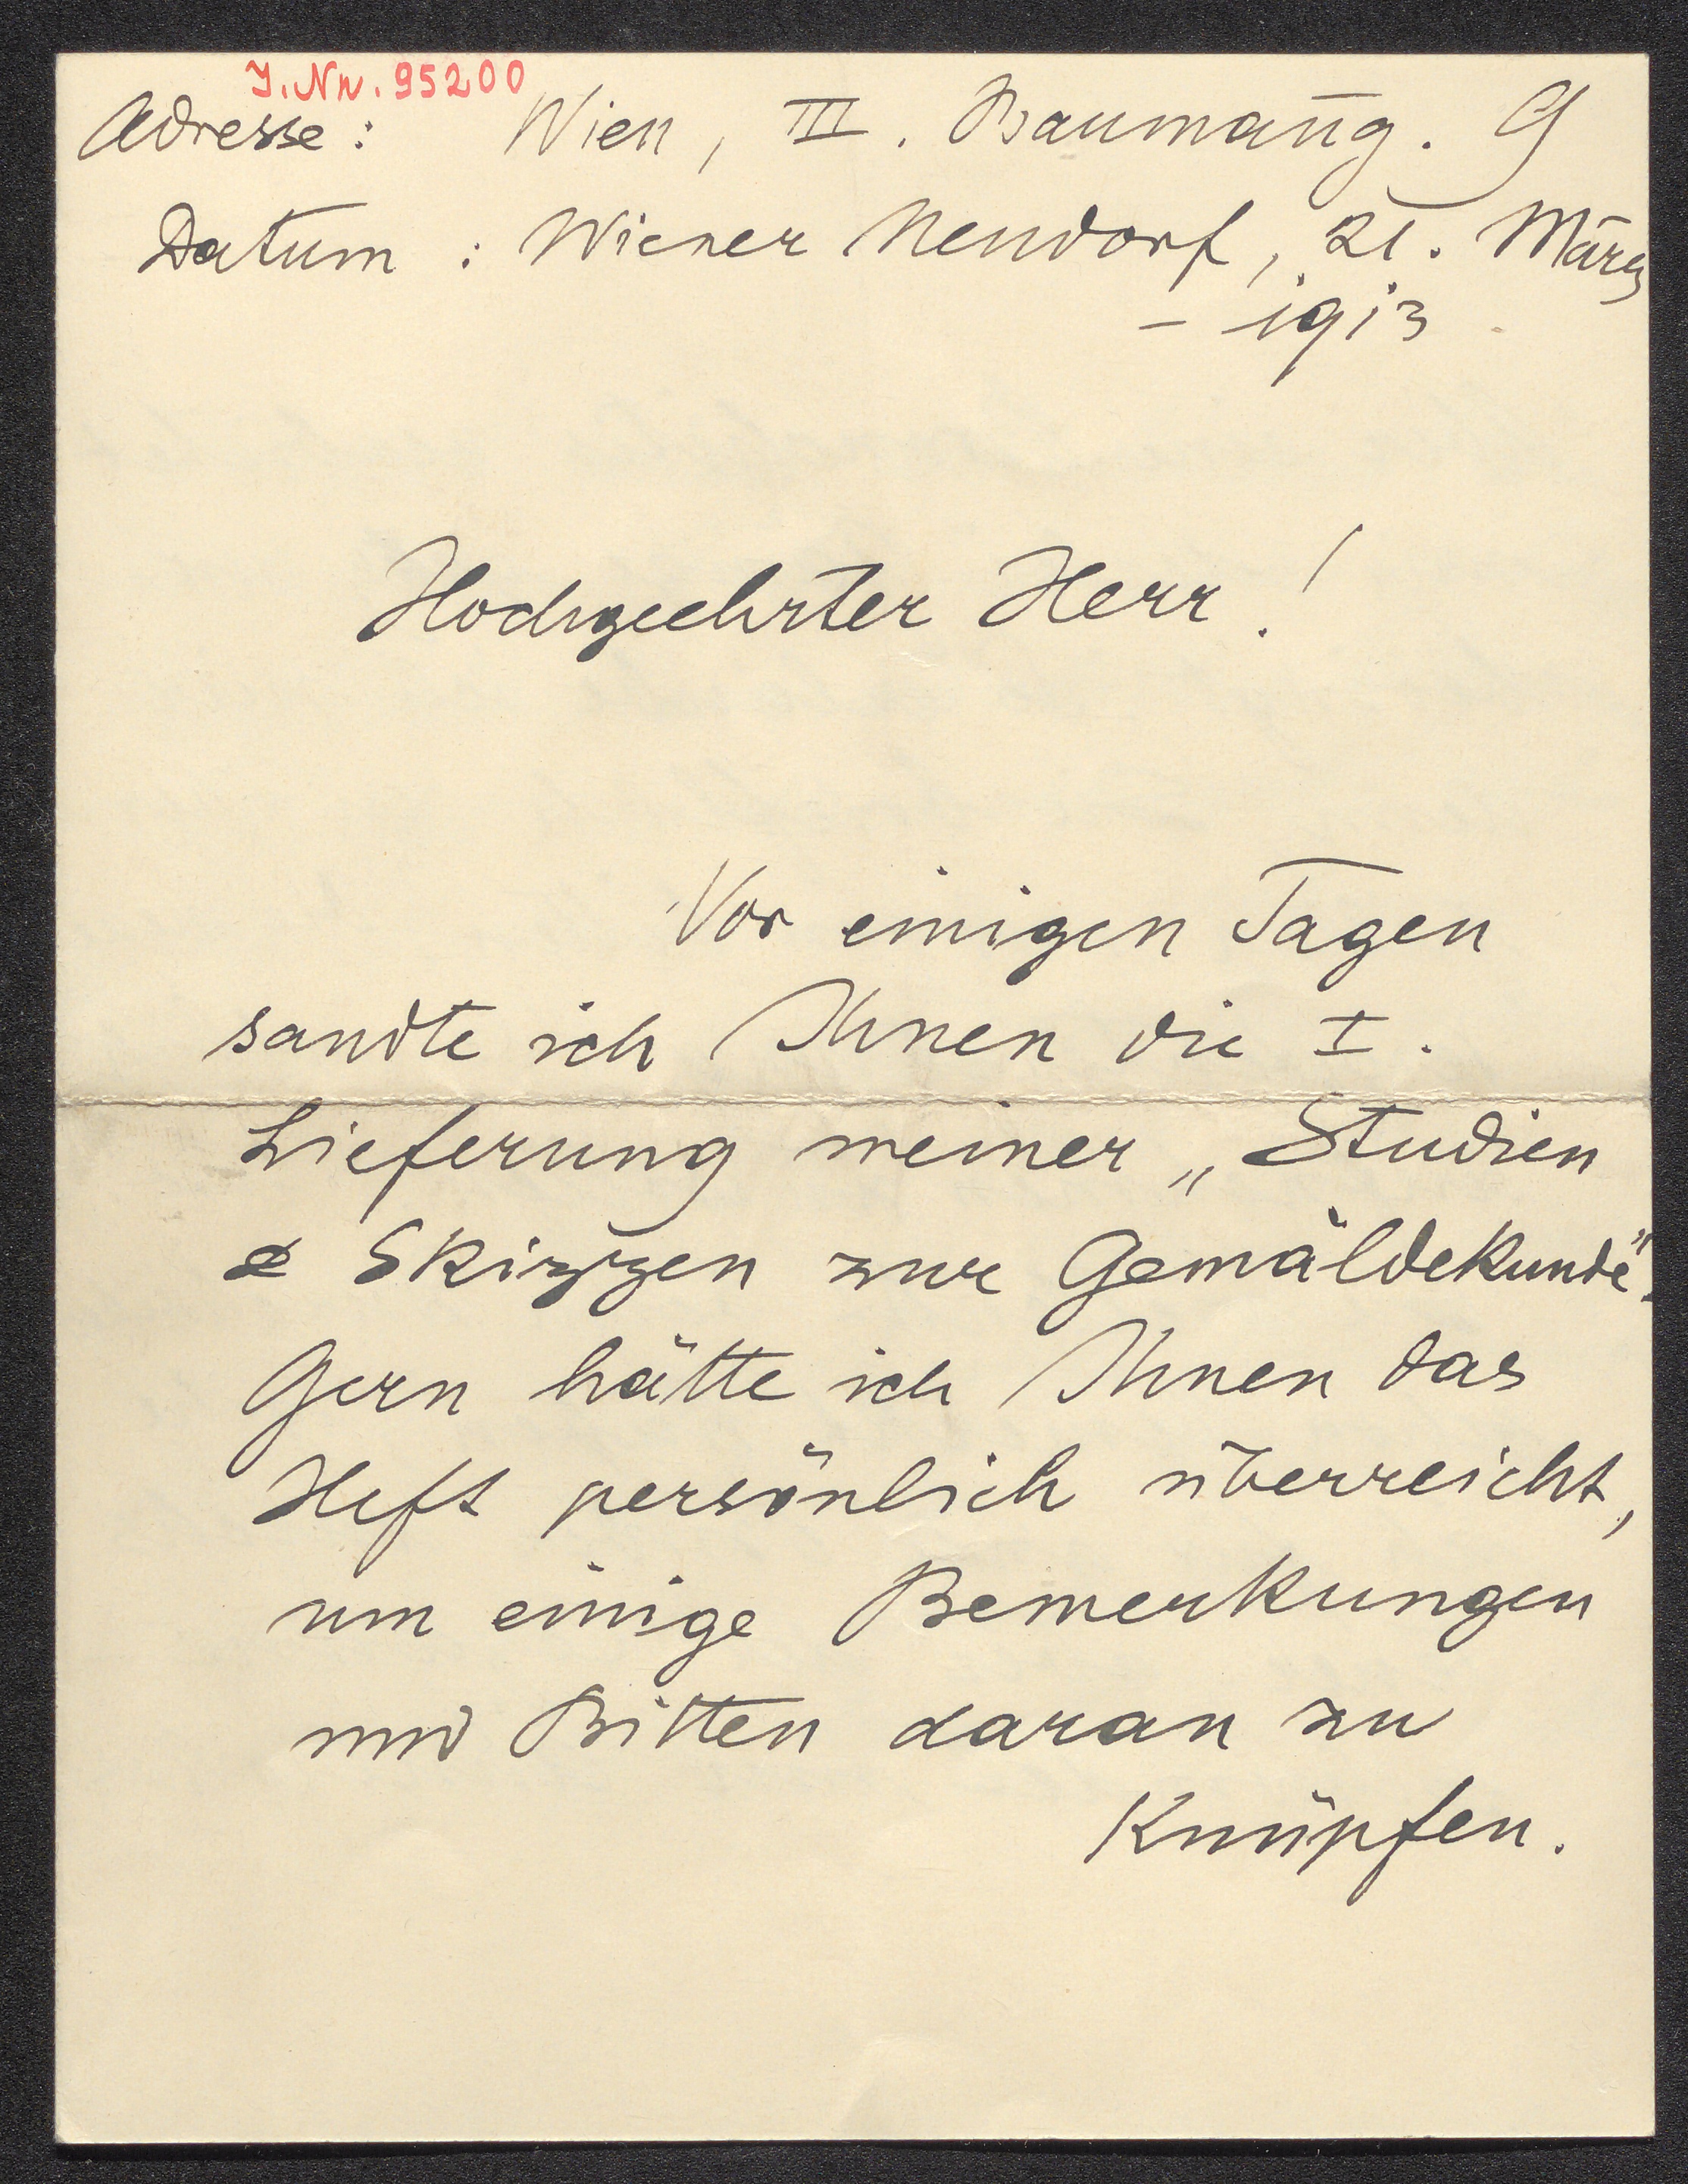 I. Nr. 95200
Adresse: Wien, III. Baumañg. 9
Datum: Wiener Neudorf, 21. März
– 1913
Hochgeehrter Herr!
Vor einigen Tagen
sandte ich Ihnen die I.
Lieferung meiner „Studien
& Skizzen zur Gemäldekunde“.
Gern hätte ich Ihnen das
Heft persönlich überreicht,
um einige Bemerkungen
und Bitten daran zu
Knüpfen.